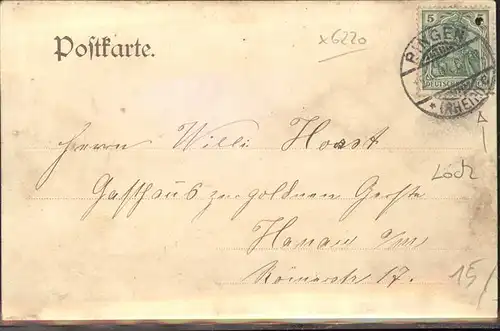 Postkarte.
x6220
5
BINGEN
(RHEIN)
Loch
Herrn Willi Horst
Gasthaus zur goldenen Gerste
Hanau a/m
Römerstr 17.
15